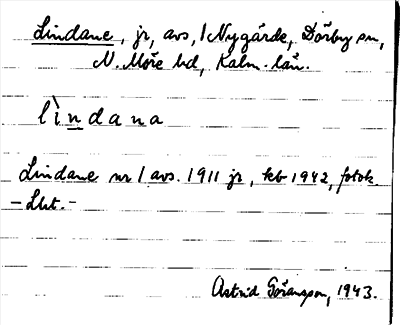 Lindane, jr, avs, 1 Nygärde, Dörby sn,
N. Möre hd, Kalm. län.
lìndana
Lindane nr 1 avs. 1911 jr, kb 1942, fotok.
- Lht. -
Astrid Göransson, 1943.